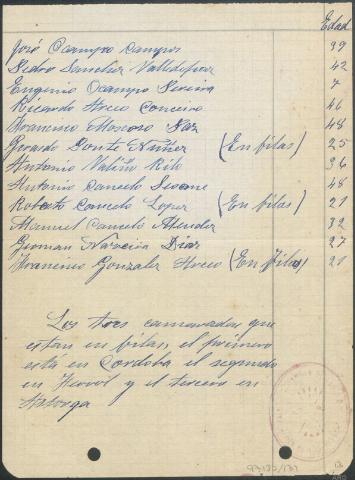 Edad
José Ocampo Campos 39
Pedro Sanchez Valledepaz 42
Eugenio Ocampo Pereira 7
Ricardo Hoco Conceiro 46
Francisco Moscoso Paz 48
Gerardo Souto Nuñez (En filas) 25
Antonio Valiño Rilo 36
Antonio Cancelo 48
Roberto Cancelo Lopez (En filas) 21
Manuel Cancelo Mendez 32
German Naveira Diaz 27
Francisco Gonzalez Hoco (En filas) 21
Los tres camaradas que
estan en filas, el primero
está en Cordoba el segundo
en Ferrol y el tercero en
Astorga